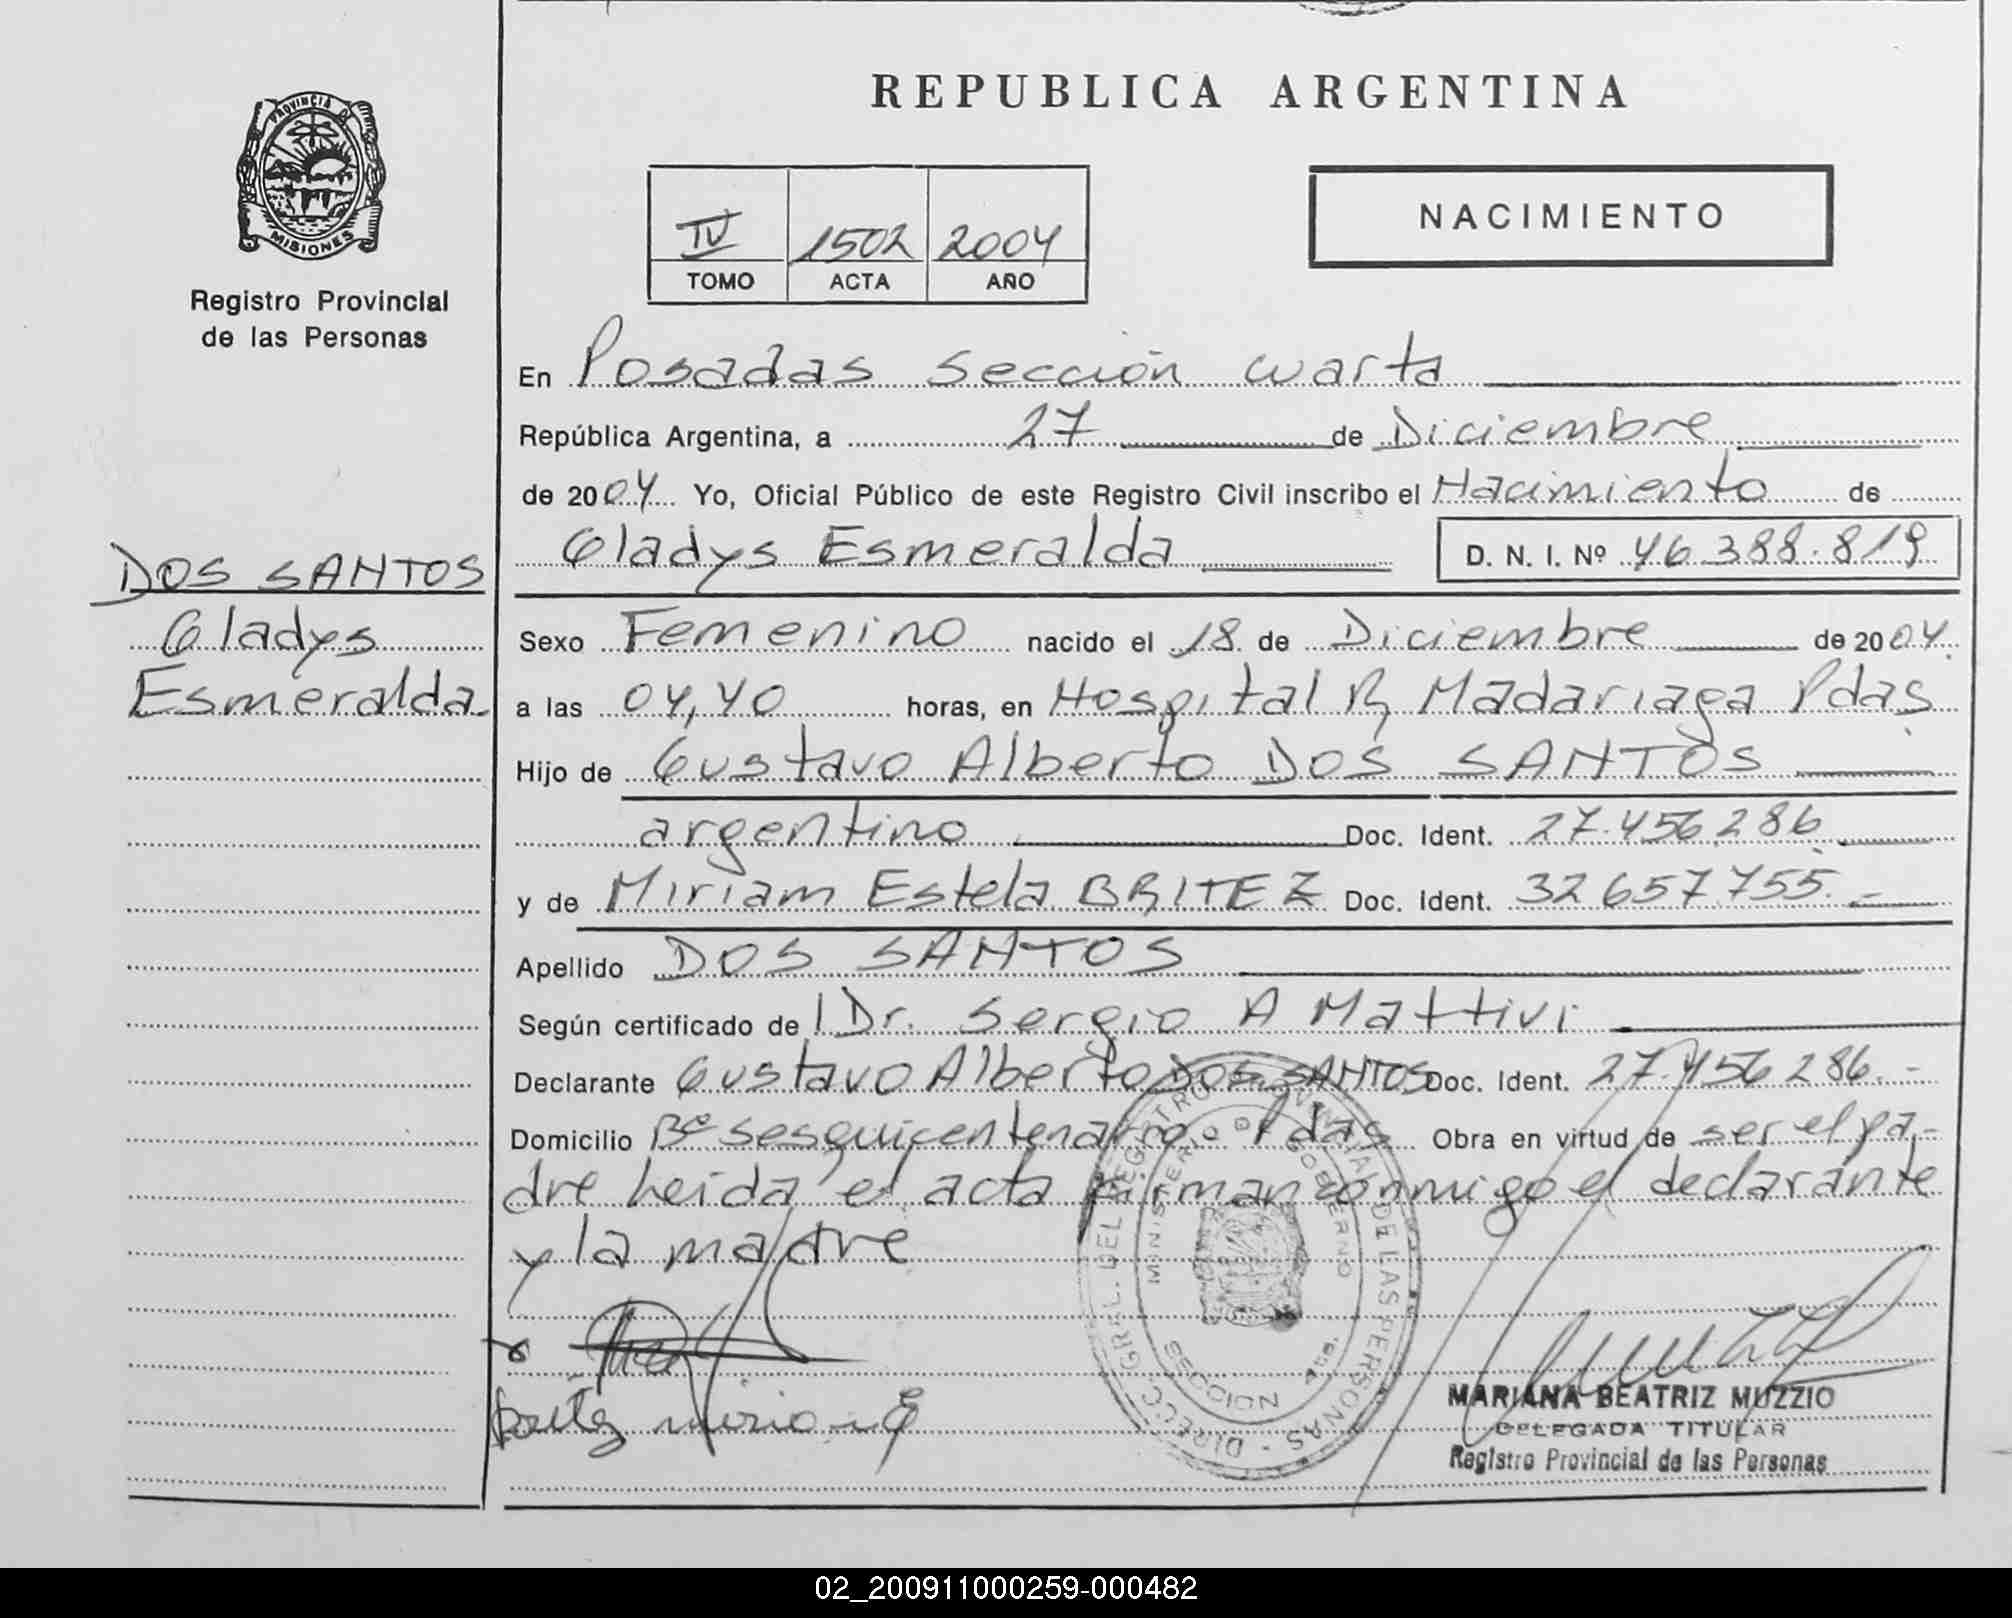 REPUBLICA ARGENTINA
PROVINCIA DE
MISIONES
Registro Provincial
de las Personas
IV 1502 2004
TOMO ACTA AÑO
NACIMIENTO
En Posadas Sección cuarta
República Argentina, a 27 de Diciembre
de 2004 Yo, Oficial Público de este Registro Civil inscribo el Nacimiento de
Gladys Esmeralda D. N. I. Nº 46.388.819
DOS SANTOS
Gladys
Esmeralda
Sexo Femenino nacido el 18 de Diciembre de 2004.
a las 04,40 horas, en Hospital R Madariaga Pdas
Hijo de Gustavo Alberto DOS SANTOS
argentino Doc. Ident. 27.456.286
y de Miriam Estela BRITEZ Doc. Ident. 32.657.755.-
Apellido DOS SANTOS
Según certificado de Dr. Sergio A Mattivi
Declarante Gustavo Alberto DOS SANTOS Doc. Ident. 27.456.286.-
Domicilio Bº Sesquicentenario. Pdas Obra en virtud de ser el pa-
dre leida el acta firman conmigo el declarante
y la madre
DIRECC. GRAL. DEL REGISTRO PROVINCIAL DE LAS PERSONAS
MINISTERIO DE GOBIERNO
MARIANA BEATRIZ MUZZIO
DELEGADA TITULAR
Registro Provincial de las Personas
02_200911000259-000482